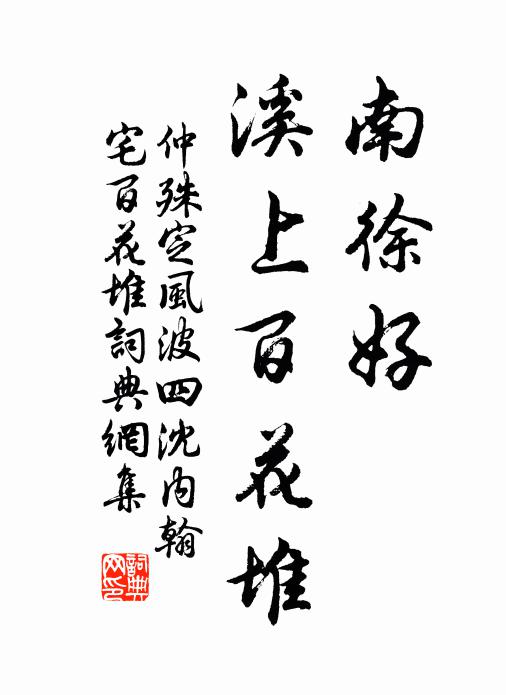 南徐好
溪上百花堆
仲殊定風波四沈內翰
宅百花堆詞典網集
詞典
网印